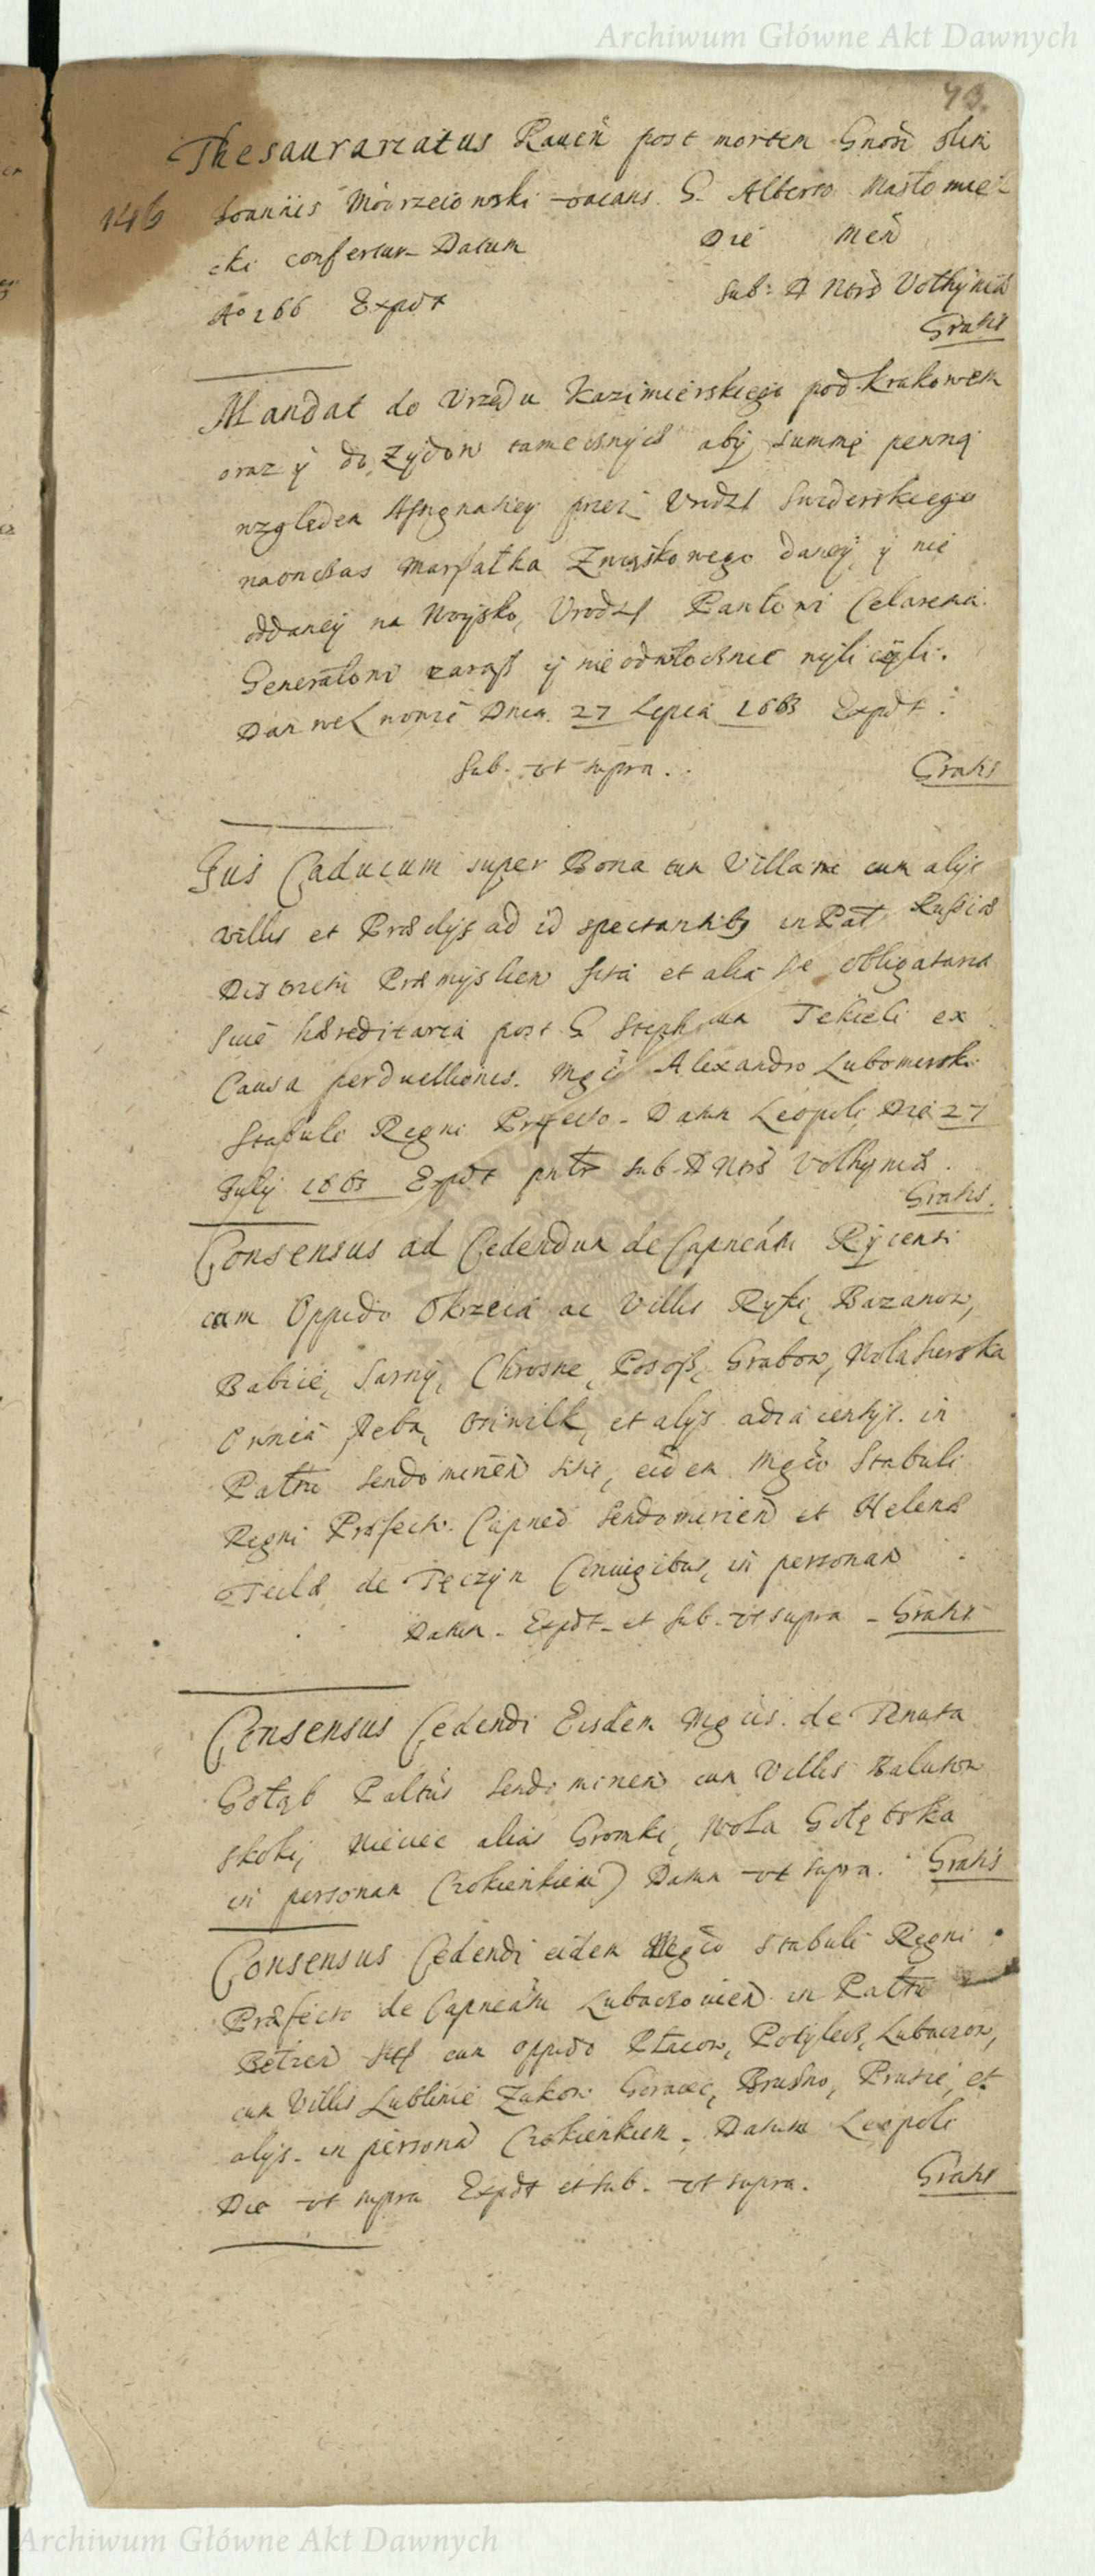 Archiwum Główne Akt Dawnych
43.
Thesaurariatus Raveń post mortem Gnosi olim
146 Joannis Modrzeiowski vacans G. Alberto Masłomię-
cki confertur Datum Die Meń
A° 166 Expdt Sub: A Ntrs Volhyniæ
Gratis
Mandat do Vrzędu Kazimierskiego pod Krakowem
oraz ÿ do Zÿdow tamecznÿch abÿ summę pewną
względem Assignatiey przez Vrodzl Swiderskiego
naonczas Marszałka Związkowego daneÿ ÿ nie
oddaneÿ na Woÿsko, Vrodzl Panłowi Celarema
Generałowi zarass ÿ nieodwłocznie wÿliczÿli.
Dan we Lwowie Dnia 27 Lipca 1663 Expdt.
Sub. vt supra. Gratis
Jus Caducum super Bona tum Villam cum alÿs
villis et Prædÿs ad id spectantibg in Pat Russiæ
Districtu Præmÿslien sita et alia sive obligatoria
sive hæreditaria post G Stephanum Tekieli ex
Causa perduellionis. Mgco Alexandro Lubomirski
Stabuli Regni Præfecto. Datum Leopoli Die 27
Julÿ 1663 Expdt pntr sub A Ntrs Volhyniæ.
Gratis.
Consensus ad Cedendum de Capneatu Rÿcensi
cum Oppido Okrzeia ac Villis Ryki, Bazanow,
Babice, Sarnÿ, Chrosne, Pososs, Grabow, Wola
Ownia et alÿs adiacentÿs in
Pattu Sendomirieñ sitis, eidem Mgco Stabuli
Regni Præfecto. Capneo Sendomirień et Helenæ
Teclæ de Tęczÿn Coniugibus, in personam
Datum. Expdt et Sub. vt supra - Gratis
Consensus Cedendi Eisdem Mgcis. de Tenuta
Gołąb Paltus Sendomirień cum Villis Balutow
skoki, Nieciec alias Gromki, Wola Gołębska
in personam Czokieńkień) Datum vt supra. Gratis
Consensus Cedendi eidem Mgco Stabuli Regni
Præfecto de Capneatu Lubaczovień in Pattu
Belzeń cum oppido Płazow, Potÿlecz, Lubaczow,
cum Villis Lublinie Zukow Goraiec, Brusno, Prusie, et
alÿs. in persona Czokieńkień. Datum Leopoli
Die vt supra Expdt et sub. vt supra. Gratis
Archiwum Główne Akt Dawnych